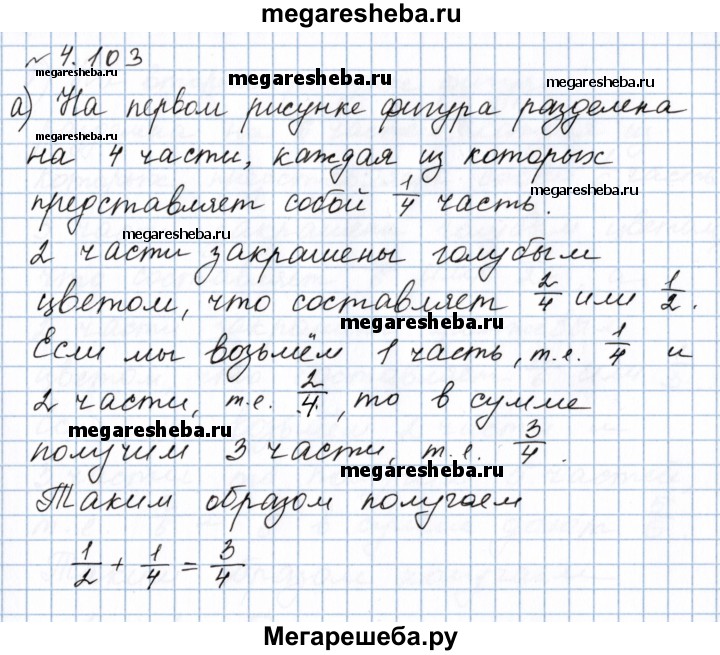 megaresheba.ru
№ 4.103
megaresheba.ru
megaresheba.ru
а) На первом рисунке фигура разделена
megaresheba.ru
на 4 части, каждая из которых
megaresheba.ru
представляет собой 1/4 часть.
megaresheba.ru
2 части закрашены голубым
цветом, что составляет 2/4 или 1/2.
megaresheba.ru
Если мы возьмём 1 часть, т.е. 1/4 и
2 части, т.е. 2/4, то в сумме
megaresheba.ru
получим 3 части, т.е. 3/4.
megaresheba.ru
Таким образом получаем
1/2 + 1/4 = 3/4
Мегарешеба.ру